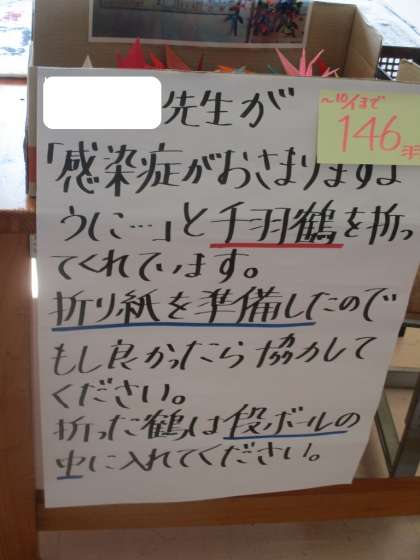 先生が
~10/1まで
146羽
「感染症がおさまりますよ
うに…」と千羽鶴を折っ
てくれています。
折り紙を準備したので
もし良かったら協力して
ください。
折った鶴は段ボールの
中に入れてください。